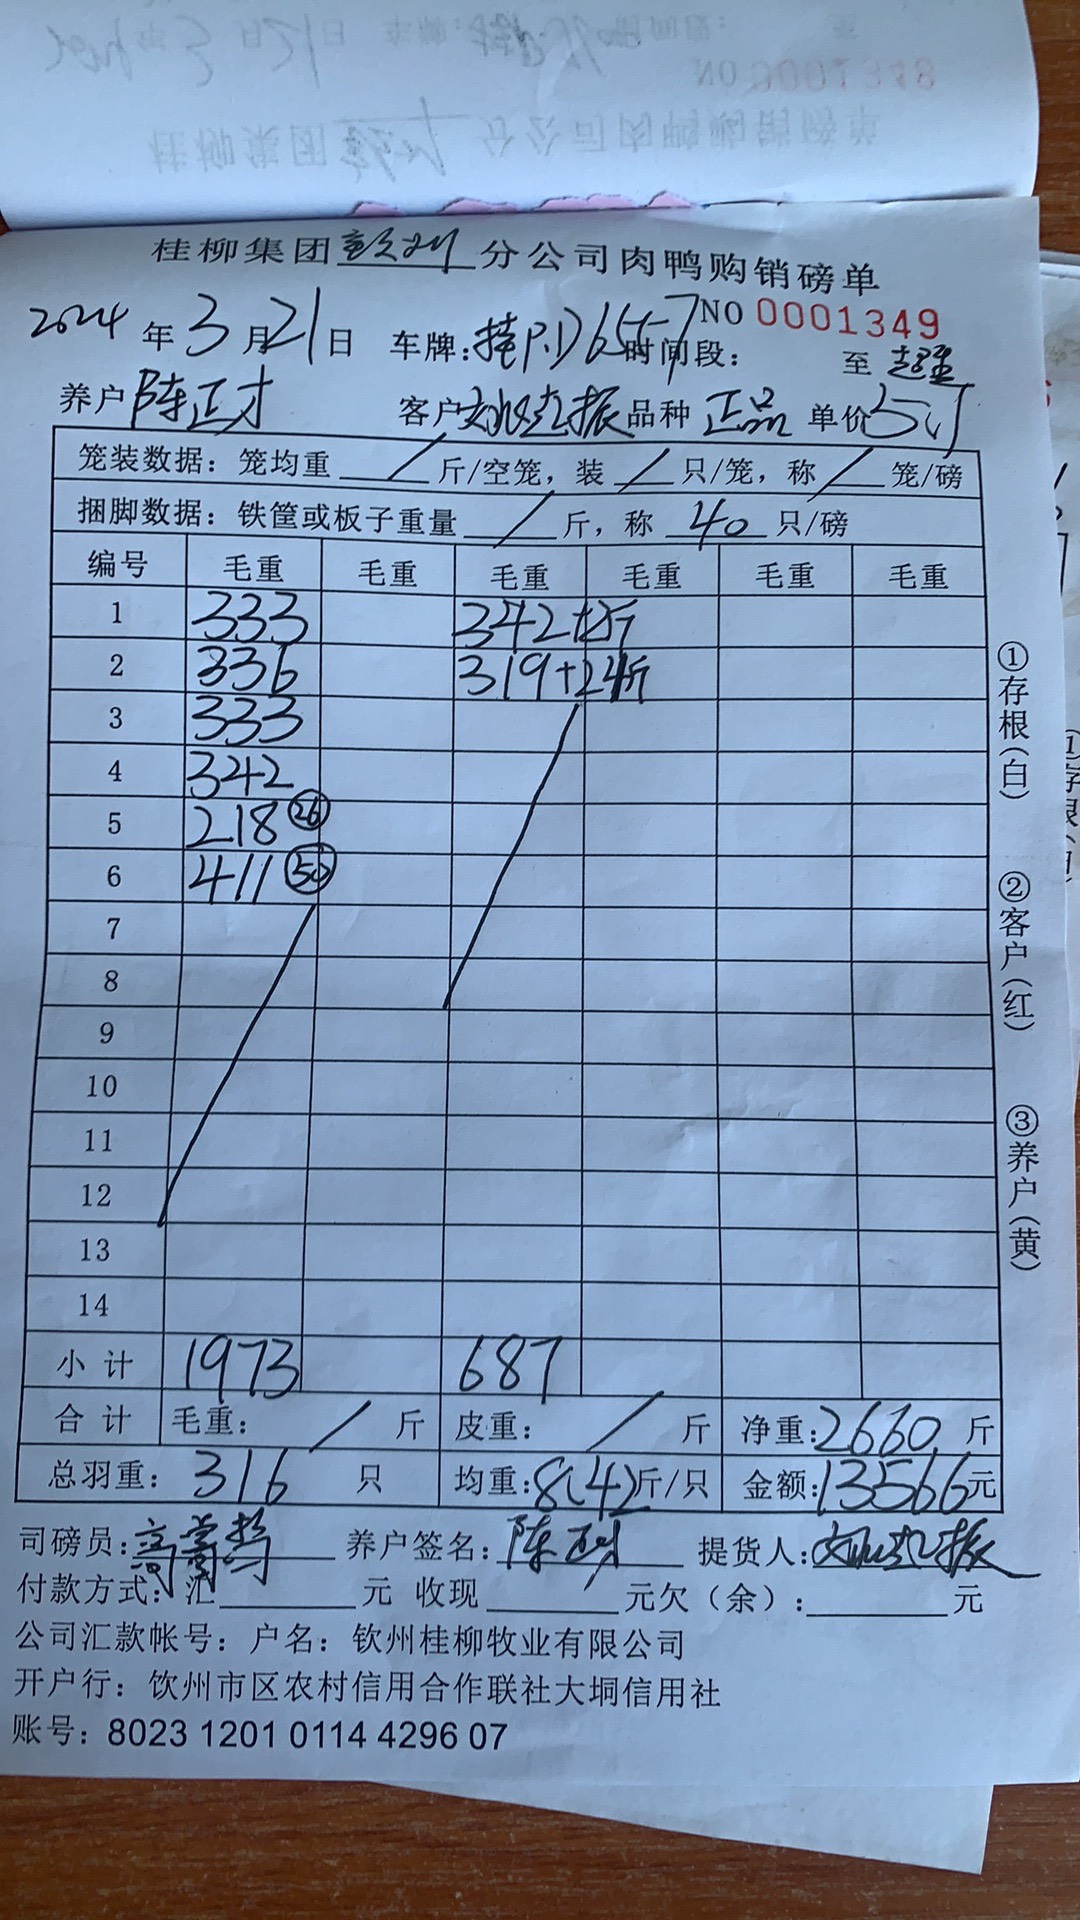 NO 0001348
桂柳集团钦州分公司肉鸭购销磅单
NO 0001349
2024年3月21日 车牌: 时间段: 至 超重
养户 陈正才 客户 刘现振 品种 正品 单价 5.1
笼装数据：笼均重 / 斤/空笼，装 / 只/笼，称 / 笼/磅
捆脚数据：铁筐或板子重量 / 斤，称 40 只/磅
编号 毛重 毛重 毛重 毛重 毛重 毛重
1 333 342+2斤
2 336 319+24斤
3 333
4 342
5 218 26
6 411 50
7
8
9
10
11
12
13
14
小计 1973 687
合计 毛重： / 斤 皮重： / 斤 净重：2660 斤
总羽重：316 只 均重：8.42斤/只 金额：13566元
司磅员： 养户签名： 提货人：
付款方式：汇 元 收现 元欠（余）： 元
公司汇款帐号：户名：钦州桂柳牧业有限公司
开户行：饮州市区农村信用合作联社大垌信用社
账号：8023 1201 0114 4296 07
①存根（白）
②客户（红）
③养户（黄）